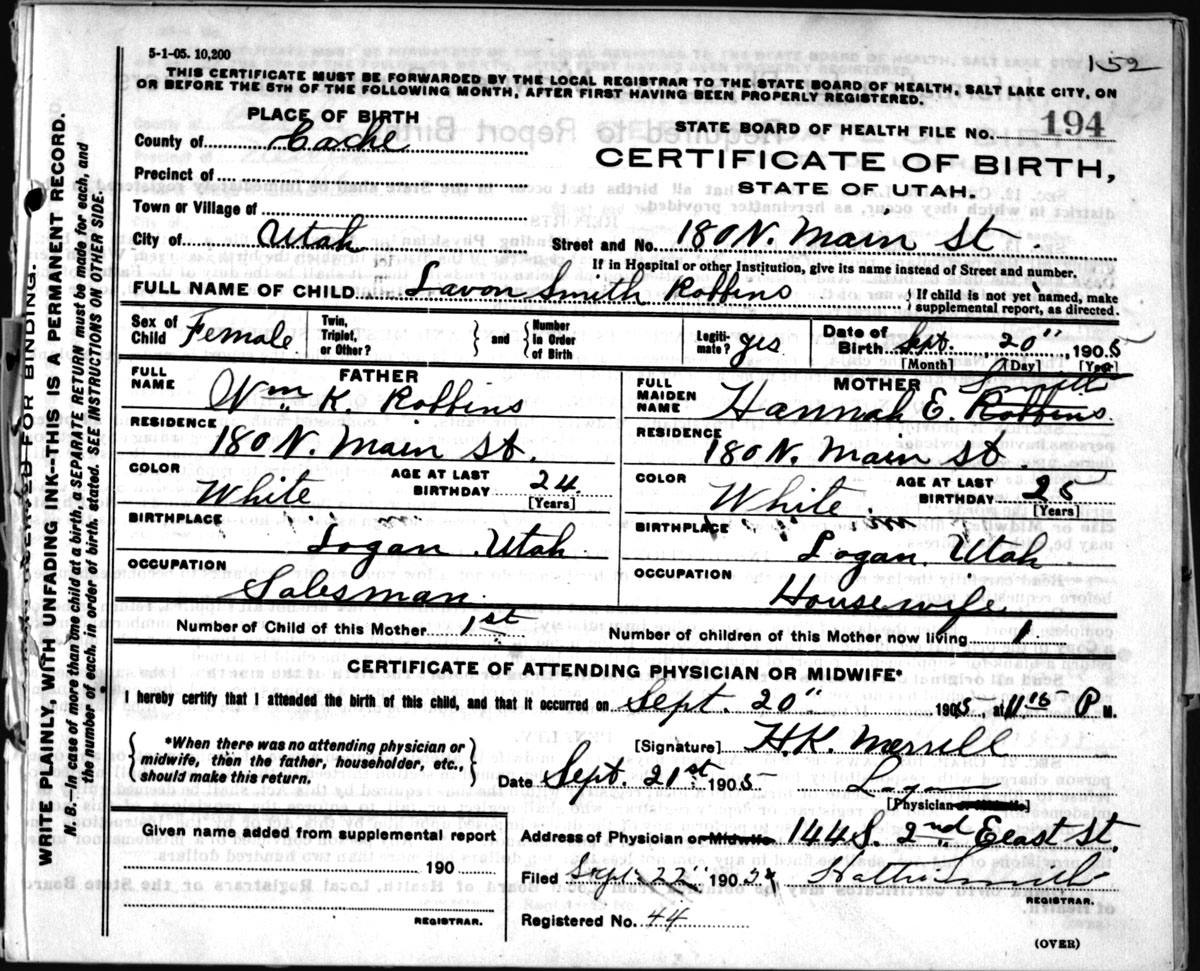 5-1-05. 10,200
152
THIS CERTIFICATE MUST BE FORWARDED BY THE LOCAL REGISTRAR TO THE STATE BOARD OF HEALTH, SALT LAKE CITY, ON
OR BEFORE THE 5TH OF THE FOLLOWING MONTH, AFTER FIRST HAVING BEEN PROPERLY REGISTERED.
PLACE OF BIRTH
STATE BOARD OF HEALTH FILE NO. 194
County of Cache
CERTIFICATE OF BIRTH,
Precinct of
STATE OF UTAH.
Town or Village of
City of Utah Street and No. 180 N. Main St.
If in Hospital or other Institution, give its name instead of Street and number.
FULL NAME OF CHILD Lavon Smith Robbins } If child is not yet named, make supplemental report, as directed.
Sex of Child Female Twin, Triplet, or Other? } and { Number in Order of Birth Legitimate? yes Date of Birth Sept. 20" 1905
[Month] [Day] [Year]
FATHER
FULL NAME Wm. K. Robbins
RESIDENCE 180 N. Main St.
COLOR White AGE AT LAST BIRTHDAY 24 [Years]
BIRTHPLACE Logan Utah
OCCUPATION Salesman
MOTHER
FULL MAIDEN NAME Hannah E. Robbins
RESIDENCE 180 N. Main St
COLOR White AGE AT LAST BIRTHDAY 25 [Years]
BIRTHPLACE Logan Utah
OCCUPATION Housewife
Number of Child of this Mother 1st Number of children of this Mother now living 1
CERTIFICATE OF ATTENDING PHYSICIAN OR MIDWIFE*
I hereby certify that I attended the birth of this child, and that it occurred on Sept. 20" 1905, at 11 15 P M.
{ *When there was no attending physician or midwife, then the father, householder, etc., should make this return. }
[Signature] H.K. Merrill
Date Sept. 21st 1905 Logan
[Physician or Midwife]
Given name added from supplemental report
190
REGISTRAR.
Address of Physician or Midwife 144 S. 2nd Eeast St.
Filed Sept. 22" 190
REGISTRAR.
Registered No. 44
(OVER)
WRITE PLAINLY, WITH UNFADING INK--THIS IS A PERMANENT RECORD.
N. B.--In case of more than one child at a birth, a SEPARATE RETURN must be made for each, and
the number of each, in order of birth, stated. SEE INSTRUCTIONS ON OTHER SIDE.